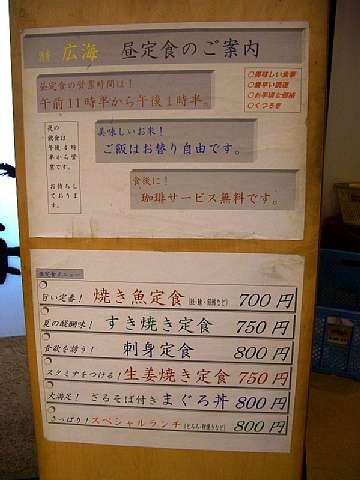 広海 昼定食のご案内
昼定食の営業時間は!
午前11時半から午後1時半。
○美味しい食事
○お手頃な価格
○くつろぎ
美味しいお米!
ご飯はお替り自由です。
夜の
飲食は
午後5時
半から営
業です。
お待ちし
ておりま
す。
食後に!
珈琲サービス無料です。
昼定食メニュー
甘い定番! 焼き魚定食 700円
夏の醍醐味! すき焼き定食 750円
食欲を誘う! 刺身定食 800円
スタミナをつける! 生姜焼き定食 750円
大満足! ざるそば付き まぐろ丼 800円
さっぱり! スペシャルランチ 800円